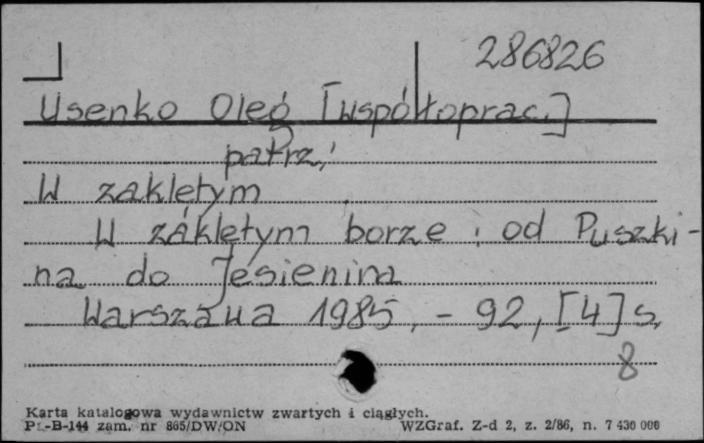 286826
Usenko Oleg [współoprac.]
patrz:
W zaklętym
W zaklętym borze : od Puszki-
na do Jesienina
Warszawa 1985, - 92, [4] s.
8
Karta katalogowa wydawnictw zwartych i ciągłych.
Pu-B-144 zam. nr 865/DW/ON WZGraf. Z-d 2, z. 2/86, n. 7 430 000